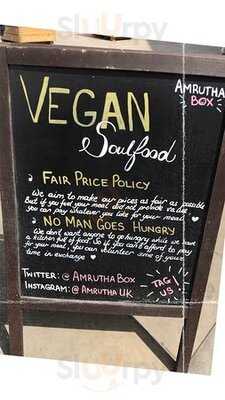 Sluurpy
AMRUTHA
BOX
VEGAN
Soulfood
FAIR PRICE POLICY
We aim to make our prices as fair as possible
But if you feel your meal did not provide value
you can pay whatever you like for your meal
NO MAN GOES HUNGRY
We dont want anyone to go hungry while we have
a kitchen full of food. So if you can't afford to pay
for your meal, you can volunteer some of your
time in exchange
TWITTER: @ AMRUTHA BOX
INSTAGRAM: @ AMRUTHA UK
TAG
US
Sluurpy